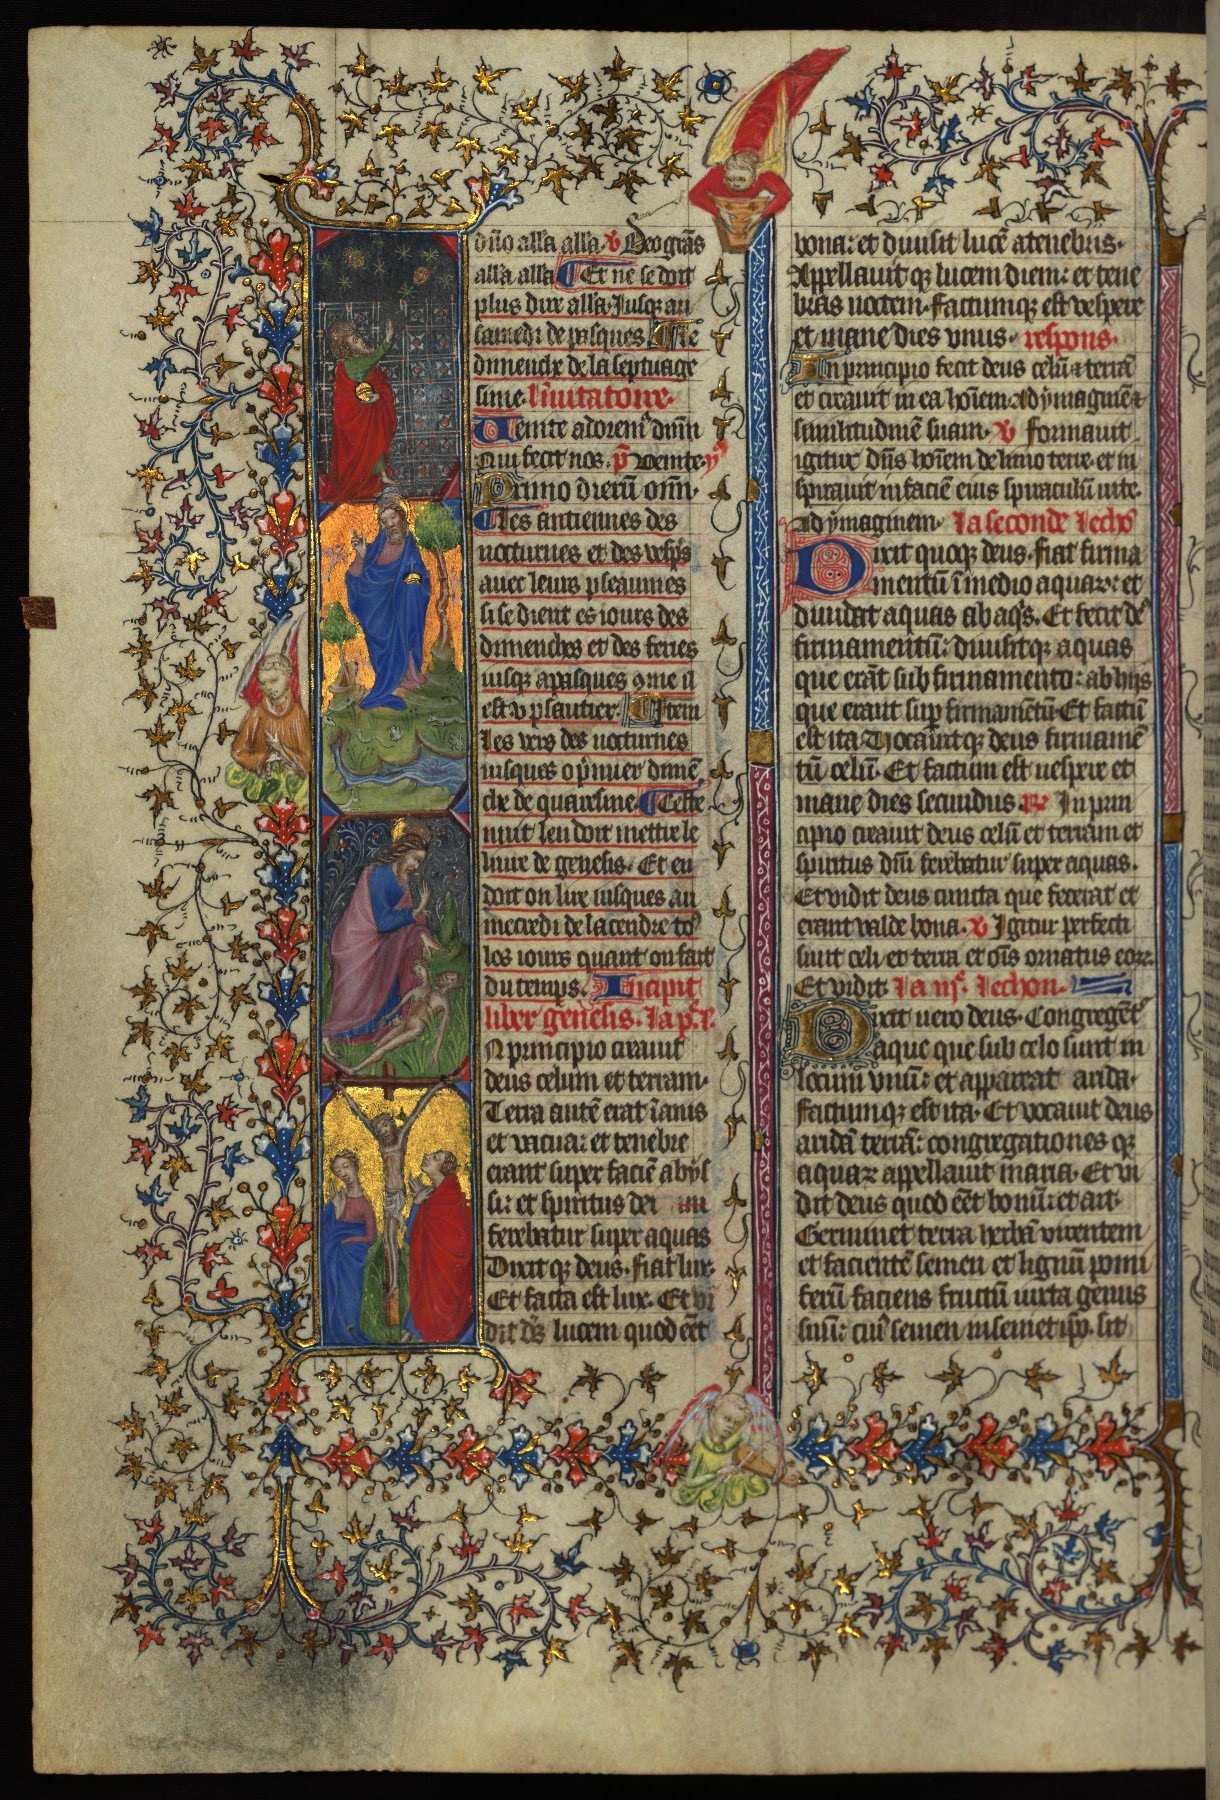 dño alla alla ℣ Deo grãs
alla alla Et ne se doit
plus dire alla Jusq̃ au
samedi de pasques Le
dimenche de la septuage
sime Invitatoire
Uenite adorem᷒ dñm
Qui fecit nos. p̃ Venite. y᷒
Primo dierũ om̃.
Les antiennes des
nocturnes et des vesp̃s
auec leurs pseaumes
si se dient es iours des
dimenches et des feries
iusq̃ a pasques 9me il
est v psautier Item
les vers des nocturnes
iusques o p̃mier dimẽ
che de quaresme Ceste
nuit len doit mettre le
liure de genesis. Et en
doit on lire iusques au
mecredi de la cendre to᷒
les iours quant on fait
du temps. Incipit
liber genesis. la p̃. l.
N principio creauit
deus celum et terram.
Terra autẽ erat ĩanis
et vacua: et tenebre
erant super faciẽ abys
si: et spiritus dei
ferebatur super aquas
Dixit qz deus. Fiat lux.
Et facta est lux. Et vi
dit d̃s lucem quod eẽt
bona: et diuisit lucẽ a tenebris.
Appellauit qz lucem diem: et tene
bras noctem. factumqz est vespere
et mane dies vnus. respons.
In principio fecit deus celũ et terrã
et creauit in ea hoĩem ad ymaginẽ et
similitudinẽ suam. ℣ formauit
igitur dñs hoĩem de limo terre. et in
spirauit in faciẽ eius spiraculũ uite.
Ad ymaginem. la seconde lechõ
Dixit quoqz deus. fiat firma
mentũ ĩ medio aquarꝝ: et
diuidat aquas ab aq̃s. Et fecit de᷒
firmamentũ: diuisitqz aquas
que erãt sub firmamento: ab hijs
que erant sup firmamẽtũ. Et factũ
est ita. Uocauitqz deus firmamẽ
tũ celũ. Et factum est uespere et
mane dies secundus. ℟ In prin
cipio creauit deus celũ et terram et
spiritus dñi ferebatur super aquas.
Et vidit deus cuncta que fecerat et
erant valde bona. ℣ Igitur perfecti
sunt celi et terra et oĩs ornatus eorꝝ.
Et vidit. la iij᷒. lechon.
Dixit uero deus. Congregẽt᷒
aque que sub celo sunt in
locum vnũ: et appareat arida.
factumqz est ita. Et vocauit deus
aridã terrã: congregationes qz
aquarꝝ appellauit maria. Et vi
dit deus quod eẽt bonũ: et ait.
Germinet terra herbã virentem
et facientẽ semen et lignũ pomi
ferũ faciens fructũ iuxta genus
suũ: cui᷒ semen in semetip̃o. sit